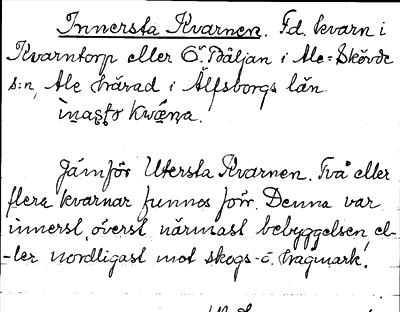 Innersta Kvarnen. Fd. kvarn i
Kvarntorp eller Ö. Båljan i Ale-Skövde
s:n, Ale härad i Älfsborgs län.

Jämför Utersta Kvarnen. Två eller
flera kvarnar funnos förr. Denna var
innerst, överst, närmast bebyggelsen, el-
-ler nordligast mot skogs- o. hagmark!